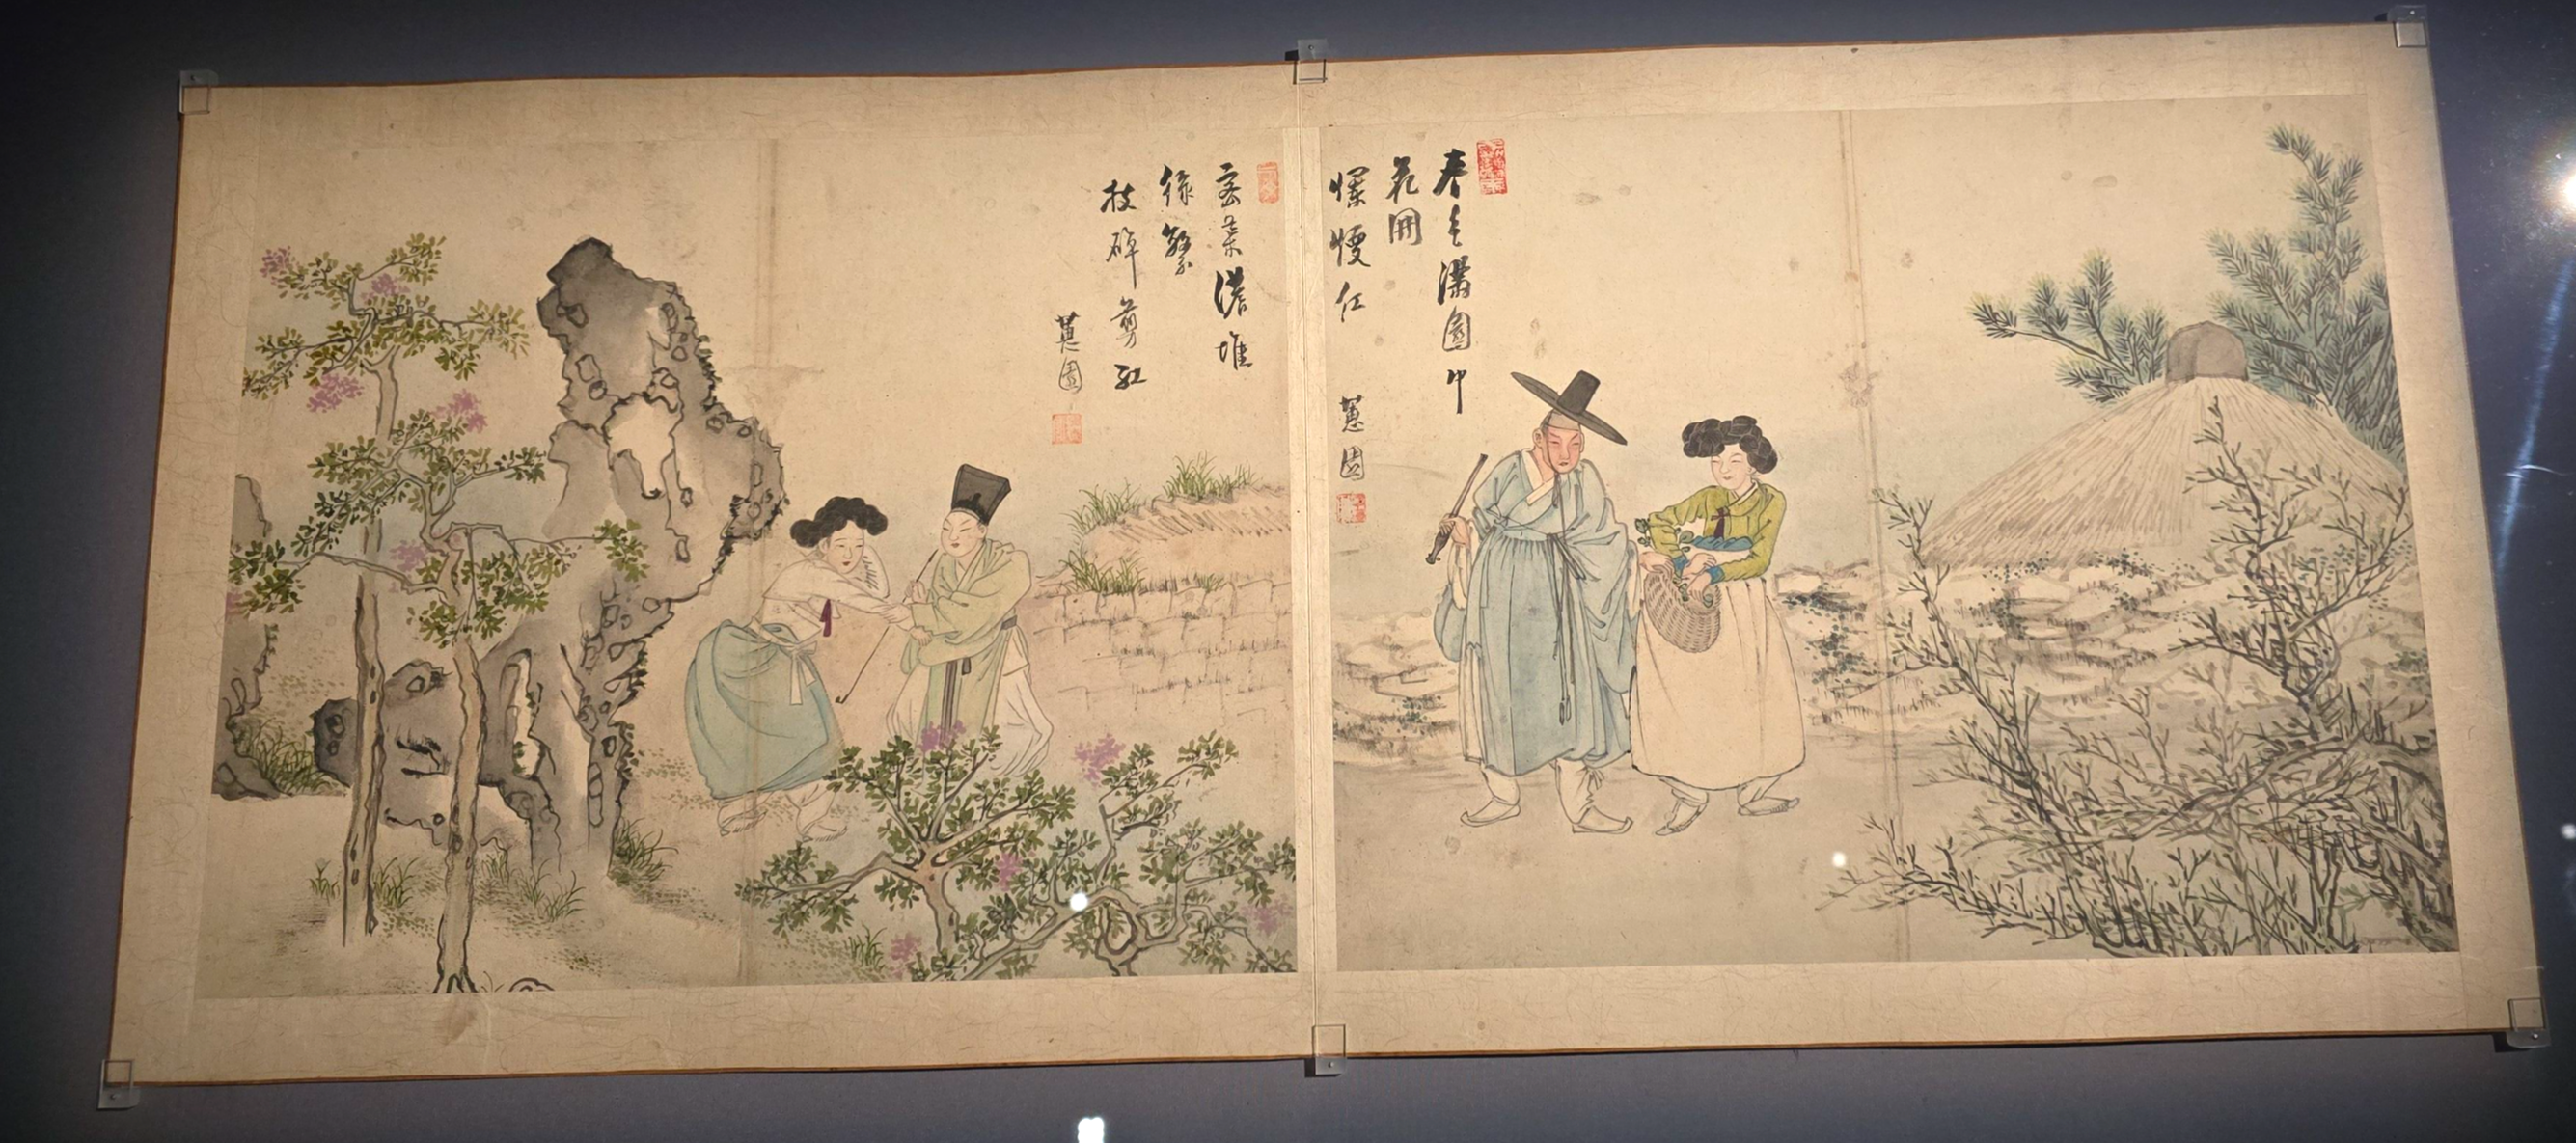 春色滿園中
花開
爛熳紅
蕙園
密葉濃堆
綠繁
枝碎剪紅
蕙園